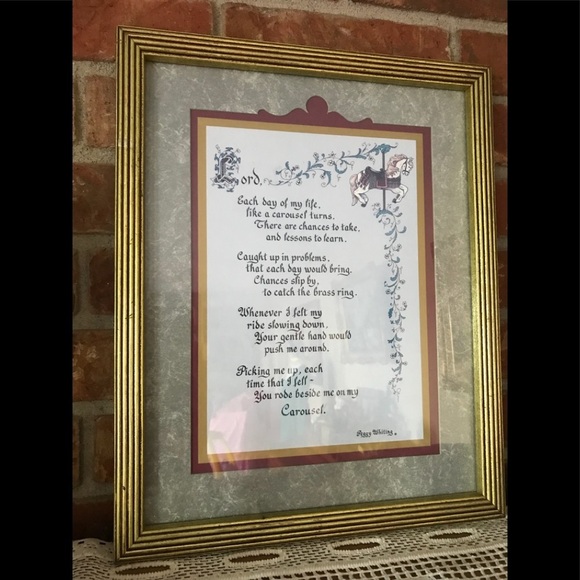 Lord,
Each day of my life,
like a carousel turns.
There are chances to take,
and lessons to learn.
Caught up in problems,
that each day would bring.
Chances slip by,
to catch the brass ring.
Whenever I felt my
ride slowing down,
Your gentle hand would
push me around.
Picking me up, each
time that I fell -
You rode beside me on my
Carousel.
Peggy Whitten